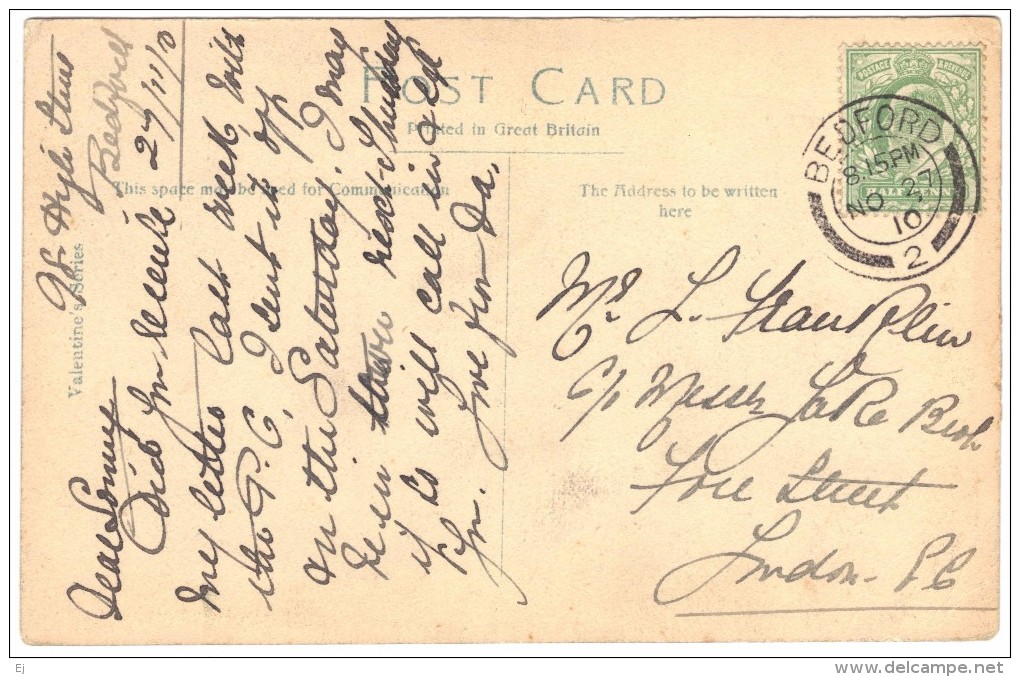 POST CARD
Printed in Great Britain
This space may be used for Communication
The Address to be written
here
Valentine's Series
POSTAGE & REVENUE
HALFPENNY
BEDFORD
8.15 PM
NO 27
10
2
Street
27/11/10
Dear Sonny
Did you receive
my letter last week, with
the P.C, I sent it off
on the Saturday. I may
be in town next Thursday
if so will call in & see
you. Love from Da.
Mr L. Franklin
c/o Messrs Lake Bros
Fore Street
London E.C
Ej
www.delcampe.net